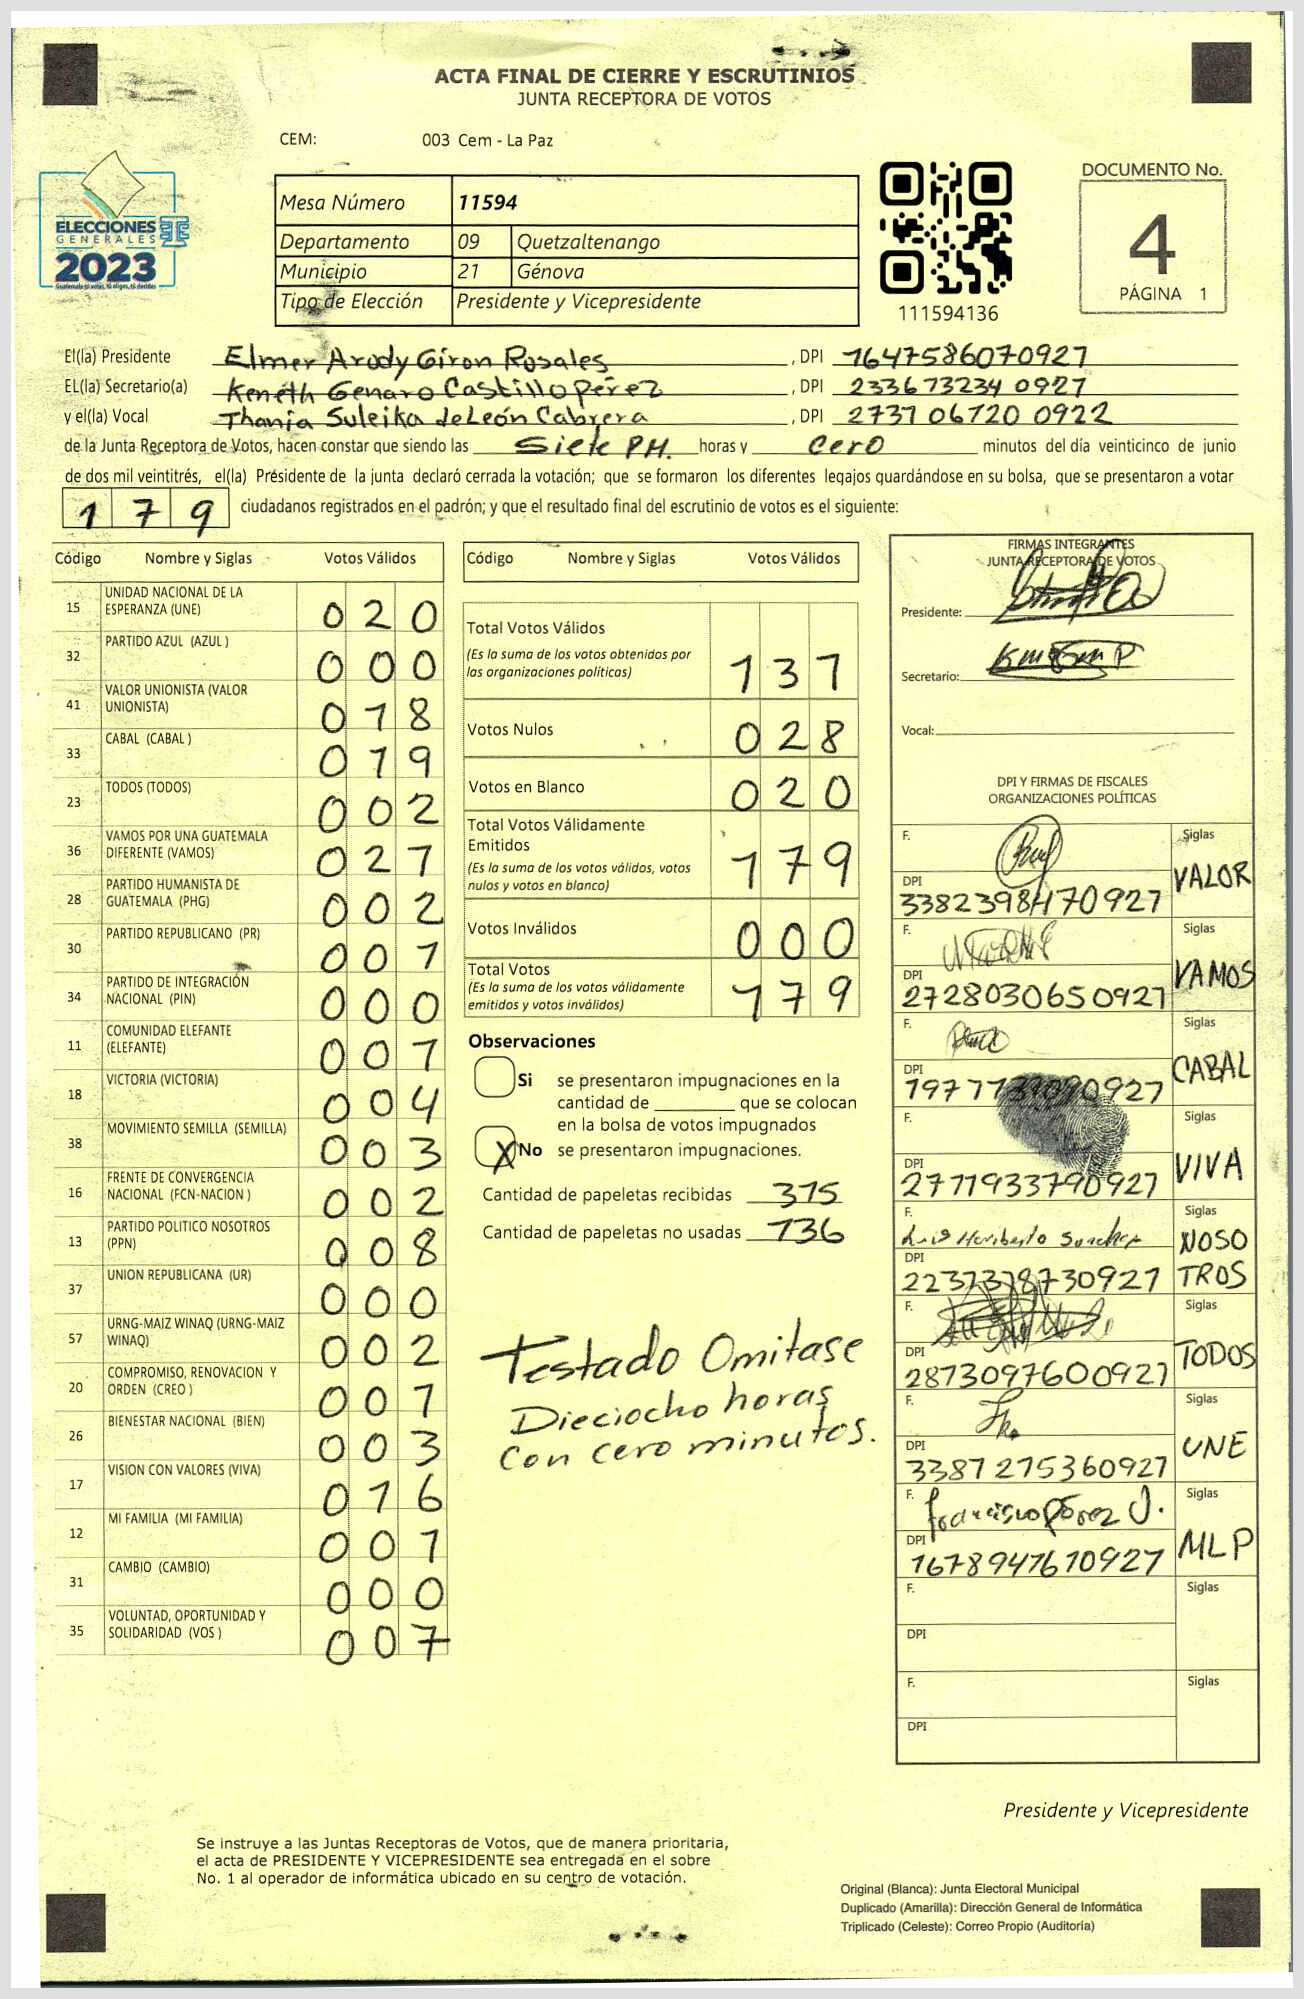 ACTA FINAL DE CIERRE Y ESCRUTINIOS
JUNTA RECEPTORA DE VOTOS
CEM: 003 Cem - La Paz
ELECCIONES
GENERALES
2023
Guatemala tú votas, tú eliges, tú decides
Mesa Número 11594
Departamento 09 Quetzaltenango
Municipio 21 Génova
Tipo de Elección Presidente y Vicepresidente
111594136
DOCUMENTO No.
4
PÁGINA 1
El(la) Presidente Elmer Arody Giron Rosales, DPI 1647586070927
EL(la) Secretario(a) Keneth Genaro Castillo Pérez, DPI 233673234 0927
y el(la) Vocal Thania Suleika de León Cabrera, DPI 2737 06720 0922
de la Junta Receptora de Votos, hacen constar que siendo las Siete P.M. horas y cero minutos del día veinticinco de junio
de dos mil veintitrés, el(la) Présidente de la junta declaró cerrada la votación; que se formaron los diferentes legajos guardándose en su bolsa, que se presentaron a votar
179 ciudadanos registrados en el padrón; y que el resultado final del escrutinio de votos es el siguiente:
Código Nombre y Siglas Votos Válidos
15 UNIDAD NACIONAL DE LA ESPERANZA (UNE) 020
32 PARTIDO AZUL (AZUL ) 000
41 VALOR UNIONISTA (VALOR UNIONISTA) 018
33 CABAL (CABAL ) 019
23 TODOS (TODOS) 002
36 VAMOS POR UNA GUATEMALA DIFERENTE (VAMOS) 027
28 PARTIDO HUMANISTA DE GUATEMALA (PHG) 002
30 PARTIDO REPUBLICANO (PR) 001
34 PARTIDO DE INTEGRACIÓN NACIONAL (PIN) 000
11 COMUNIDAD ELEFANTE (ELEFANTE) 001
18 VICTORIA (VICTORIA) 004
38 MOVIMIENTO SEMILLA (SEMILLA) 003
16 FRENTE DE CONVERGENCIA NACIONAL (FCN-NACION ) 002
13 PARTIDO POLITICO NOSOTROS (PPN) 008
37 UNION REPUBLICANA (UR) 000
57 URNG-MAIZ WINAQ (URNG-MAIZ WINAQ) 002
20 COMPROMISO, RENOVACION Y ORDEN (CREO ) 001
26 BIENESTAR NACIONAL (BIEN) 003
17 VISION CON VALORES (VIVA) 016
12 MI FAMILIA (MI FAMILIA) 001
31 CAMBIO (CAMBIO) 000
35 VOLUNTAD, OPORTUNIDAD Y SOLIDARIDAD (VOS ) 007
Código Nombre y Siglas Votos Válidos
Total Votos Válidos
(Es la suma de los votos obtenidos por las organizaciones políticas) 131
Votos Nulos 028
Votos en Blanco 020
Total Votos Válidamente Emitidos
(Es la suma de los votos válidos, votos nulos y votos en blanco) 179
Votos Inválidos 000
Total Votos
(Es la suma de los votos válidamente emitidos y votos inválidos) 179
Observaciones
Si se presentaron impugnaciones en la
cantidad de ________ que se colocan
en la bolsa de votos impugnados
X No se presentaron impugnaciones.
Cantidad de papeletas recibidas 315
Cantidad de papeletas no usadas 136
Testado Omitase
Dieciocho horas
Con cero minutos.
FIRMAS INTEGRANTES
JUNTA RECEPTORA DE VOTOS
Presidente:
Secretario:
Vocal:
DPI Y FIRMAS DE FISCALES
ORGANIZACIONES POLÍTICAS
F. Siglas
DPI VALOR
F. Siglas
DPI 2728030650927 VAMOS
F. Siglas
DPI CABAL
F. Siglas
DPI 2771933790927 VIVA
F. Luis Heriberto Sanchez Siglas
DPI NOSOTROS
F. Siglas
DPI 2873097600927 TODOS
F. Siglas
DPI 3387275360927 UNE
F. Francisco Pérez J. Siglas
DPI 1678947670927 MLP
F. Siglas
DPI
F. Siglas
DPI
Presidente y Vicepresidente
Se instruye a las Juntas Receptoras de Votos, que de manera prioritaria,
el acta de PRESIDENTE Y VICEPRESIDENTE sea entregada en el sobre
No. 1 al operador de informática ubicado en su centro de votación.
Original (Blanca): Junta Electoral Municipal
Duplicado (Amarilla): Dirección General de Informática
Triplicado (Celeste): Correo Propio (Auditoría)